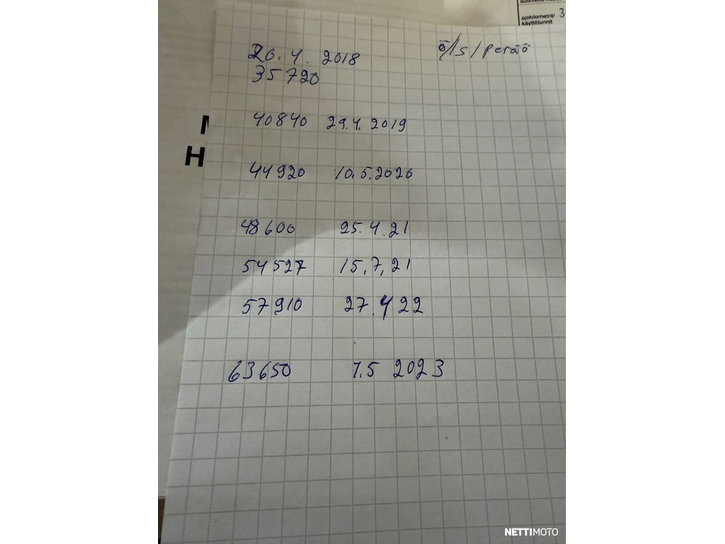 26.4. 2018
ö/s/peräö
35720
40840 29.4.2019
44920 10.5.2020
48600 25.4.21
54527 15,7,21
57910 27.4 22
63650 7.5 2023
ajokilometrit/
käyttötunnit
3
H
NETTIMOTO